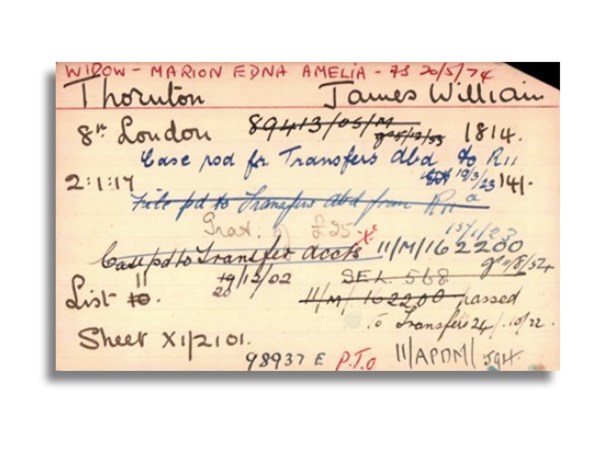 WIDOW - MARION EDNA AMELIA - 20/5/74
Thornton James William
8th London 89413/05/M 1814.
Case psd for Transfers abd to R11
2:1:17 19/3/23 141.
File pd to Transfers abd from R11
15/1/23
Grat. £25
Case pd to Transfer accts 11/M/162200
11 19/12/02 SEL. 568
20
List 10. 11/M/162200 passed
to Transfers 24/10/22.
Sheet X1/2101.
98937 E P.T.O 11/APDM/